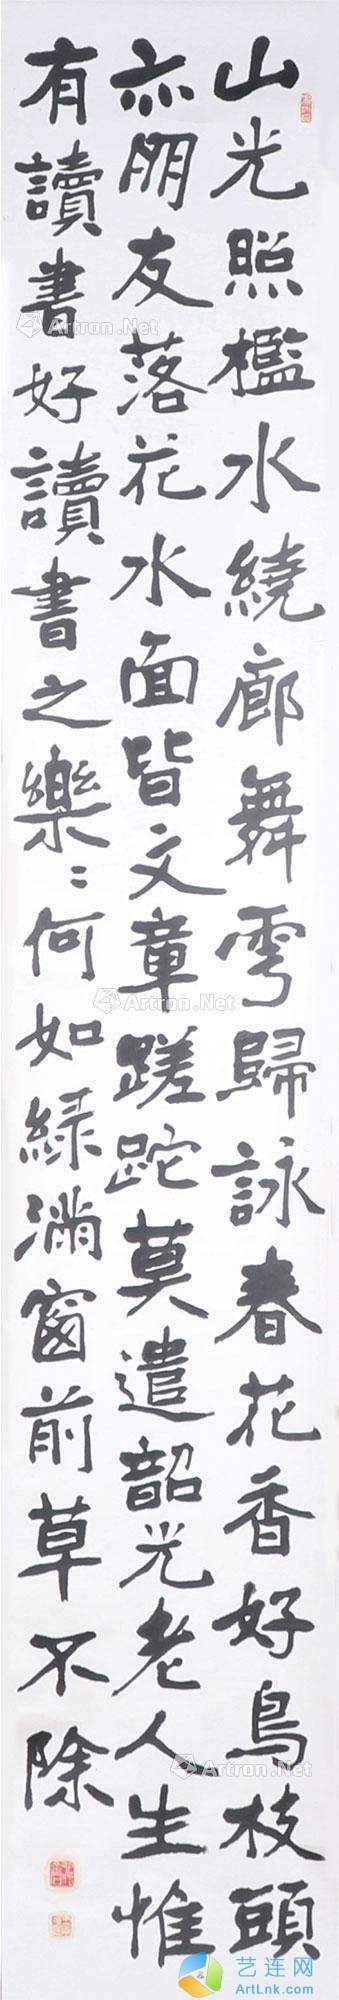 山光照檻水繞廊舞雩歸詠春花香好鳥枝頭
亦朋友落花水面皆文章蹉跎莫遣韶光老人生惟
有讀書好讀書之樂〻何如綠滿窗前草不除
Artron.Net
Artron.Net
Artron.Net
Artron.Net
Artron.Net
Artron.Net
艺连网
ArtLnk.Com